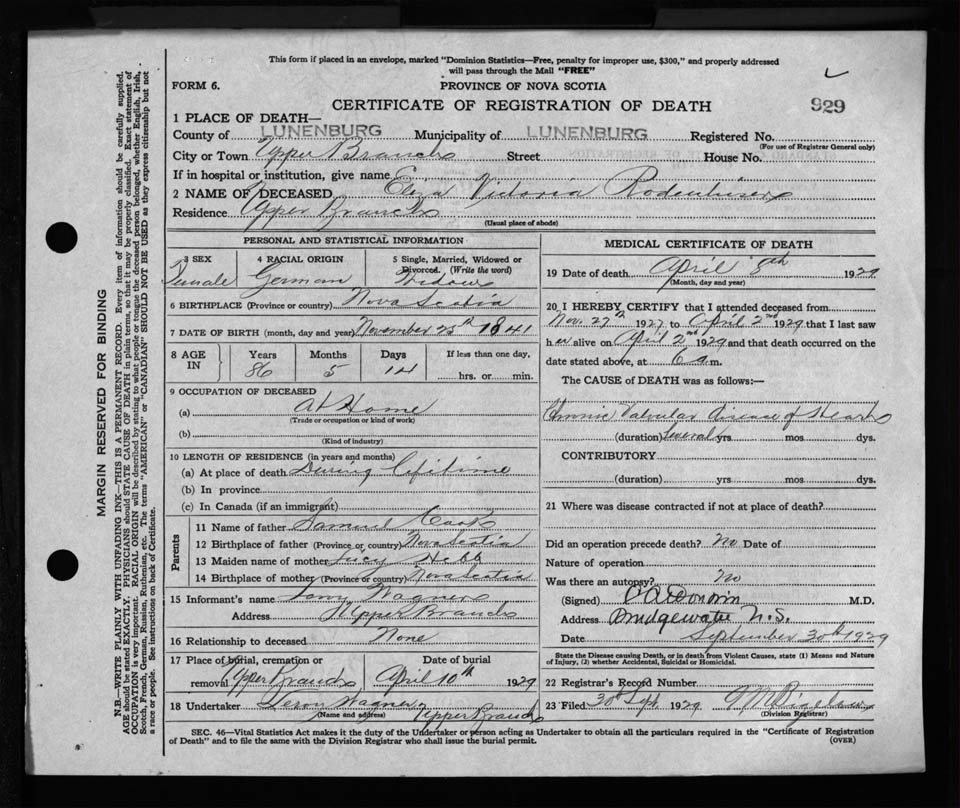 This form if placed in an envelope, marked "Dominion Statistics—Free, penalty for improper use, $300," and properly addressed
will pass through the Mail "FREE"
FORM 6.
PROVINCE OF NOVA SCOTIA
CERTIFICATE OF REGISTRATION OF DEATH
929
1 PLACE OF DEATH—
County of LUNENBURG Municipality of LUNENBURG Registered No.
(For use of Registrar General only)
City or Town Upper Branch Street House No.
If in hospital or institution, give name
2 NAME OF DECEASED Eliza Victoria Rodenhiser
Residence Upper Branch
(Usual place of abode)
PERSONAL AND STATISTICAL INFORMATION
3 SEX 4 RACIAL ORIGIN 5 Single, Married, Widowed or
Divorced. (Write the word)
Female German Widow
6 BIRTHPLACE (Province or country) Nova Scotia
7 DATE OF BIRTH (month, day and year) November 25th 1841
8 AGE IN Years Months Days If less than one day,
86 5 14 hrs. or min.
9 OCCUPATION OF DECEASED
(a) At Home
(Trade or occupation or kind of work)
(b)
(Kind of industry)
10 LENGTH OF RESIDENCE (in years and months)
(a) At place of death During Lifetime
(b) In province
(c) In Canada (if an immigrant)
Parents
11 Name of father Samuel Cook
12 Birthplace of father (Province or country) Nova Scotia
13 Maiden name of mother Lucy Hebb
14 Birthplace of mother (Province or country) Nova Scotia
15 Informant's name Wagner
Address Upper Branch
16 Relationship to deceased None
17 Place of burial, cremation or Date of burial
removal Upper Branch April 10th 1929
18 Undertaker Wagner Upper Branch
(Name and address)
MEDICAL CERTIFICATE OF DEATH
19 Date of death April 8th 1929
(Month, day and year)
20 I HEREBY CERTIFY that I attended deceased from
Nov. 27th 1927 to April 2nd 1929 that I last saw
her alive on April 2nd 1929 and that death occurred on the
date stated above, at 6 a m.
The CAUSE OF DEATH was as follows:—
Chronic Valvular Disease of Heart
(duration) Several yrs mos dys.
CONTRIBUTORY
(duration) yrs mos dys.
21 Where was disease contracted if not at place of death?
Did an operation precede death? No Date of
Nature of operation
Was there an autopsy? No
(Signed) M.D.
Address Bridgewater N.S.
Date September 30th 1929
State the Disease causing Death, or in death from Violent Causes, state (1) Means and Nature
of Injury, (2) whether Accidental, Suicidal or Homicidal.
22 Registrar's Record Number
23 Filed 30th Sept 1929
(Division Registrar)
SEC. 46—Vital Statistics Act makes it the duty of the Undertaker or person acting as Undertaker to obtain all the particulars required in the "Certificate of Registration
of Death" and to file the same with the Division Registrar who shall issue the burial permit.
(OVER)
MARGIN RESERVED FOR BINDING
N.B.—WRITE PLAINLY WITH UNFADING INK—THIS IS A PERMANENT RECORD. Every item of information should be carefully supplied.
AGE should be stated EXACTLY. PHYSICIANS should STATE CAUSE OF DEATH in plain terms, so that it may be properly classified. Exact statement of
OCCUPATION is very important. RACIAL ORIGIN will be described by stating to what people or tongue the deceased person belonged, whether English, Irish,
Scotch, French, German, Russian, Ruthenian, etc. The terms "AMERICAN" or "CANADIAN" SHOULD NOT BE USED as they express citizenship but not
a race or people. See instructions on back of Certificate.